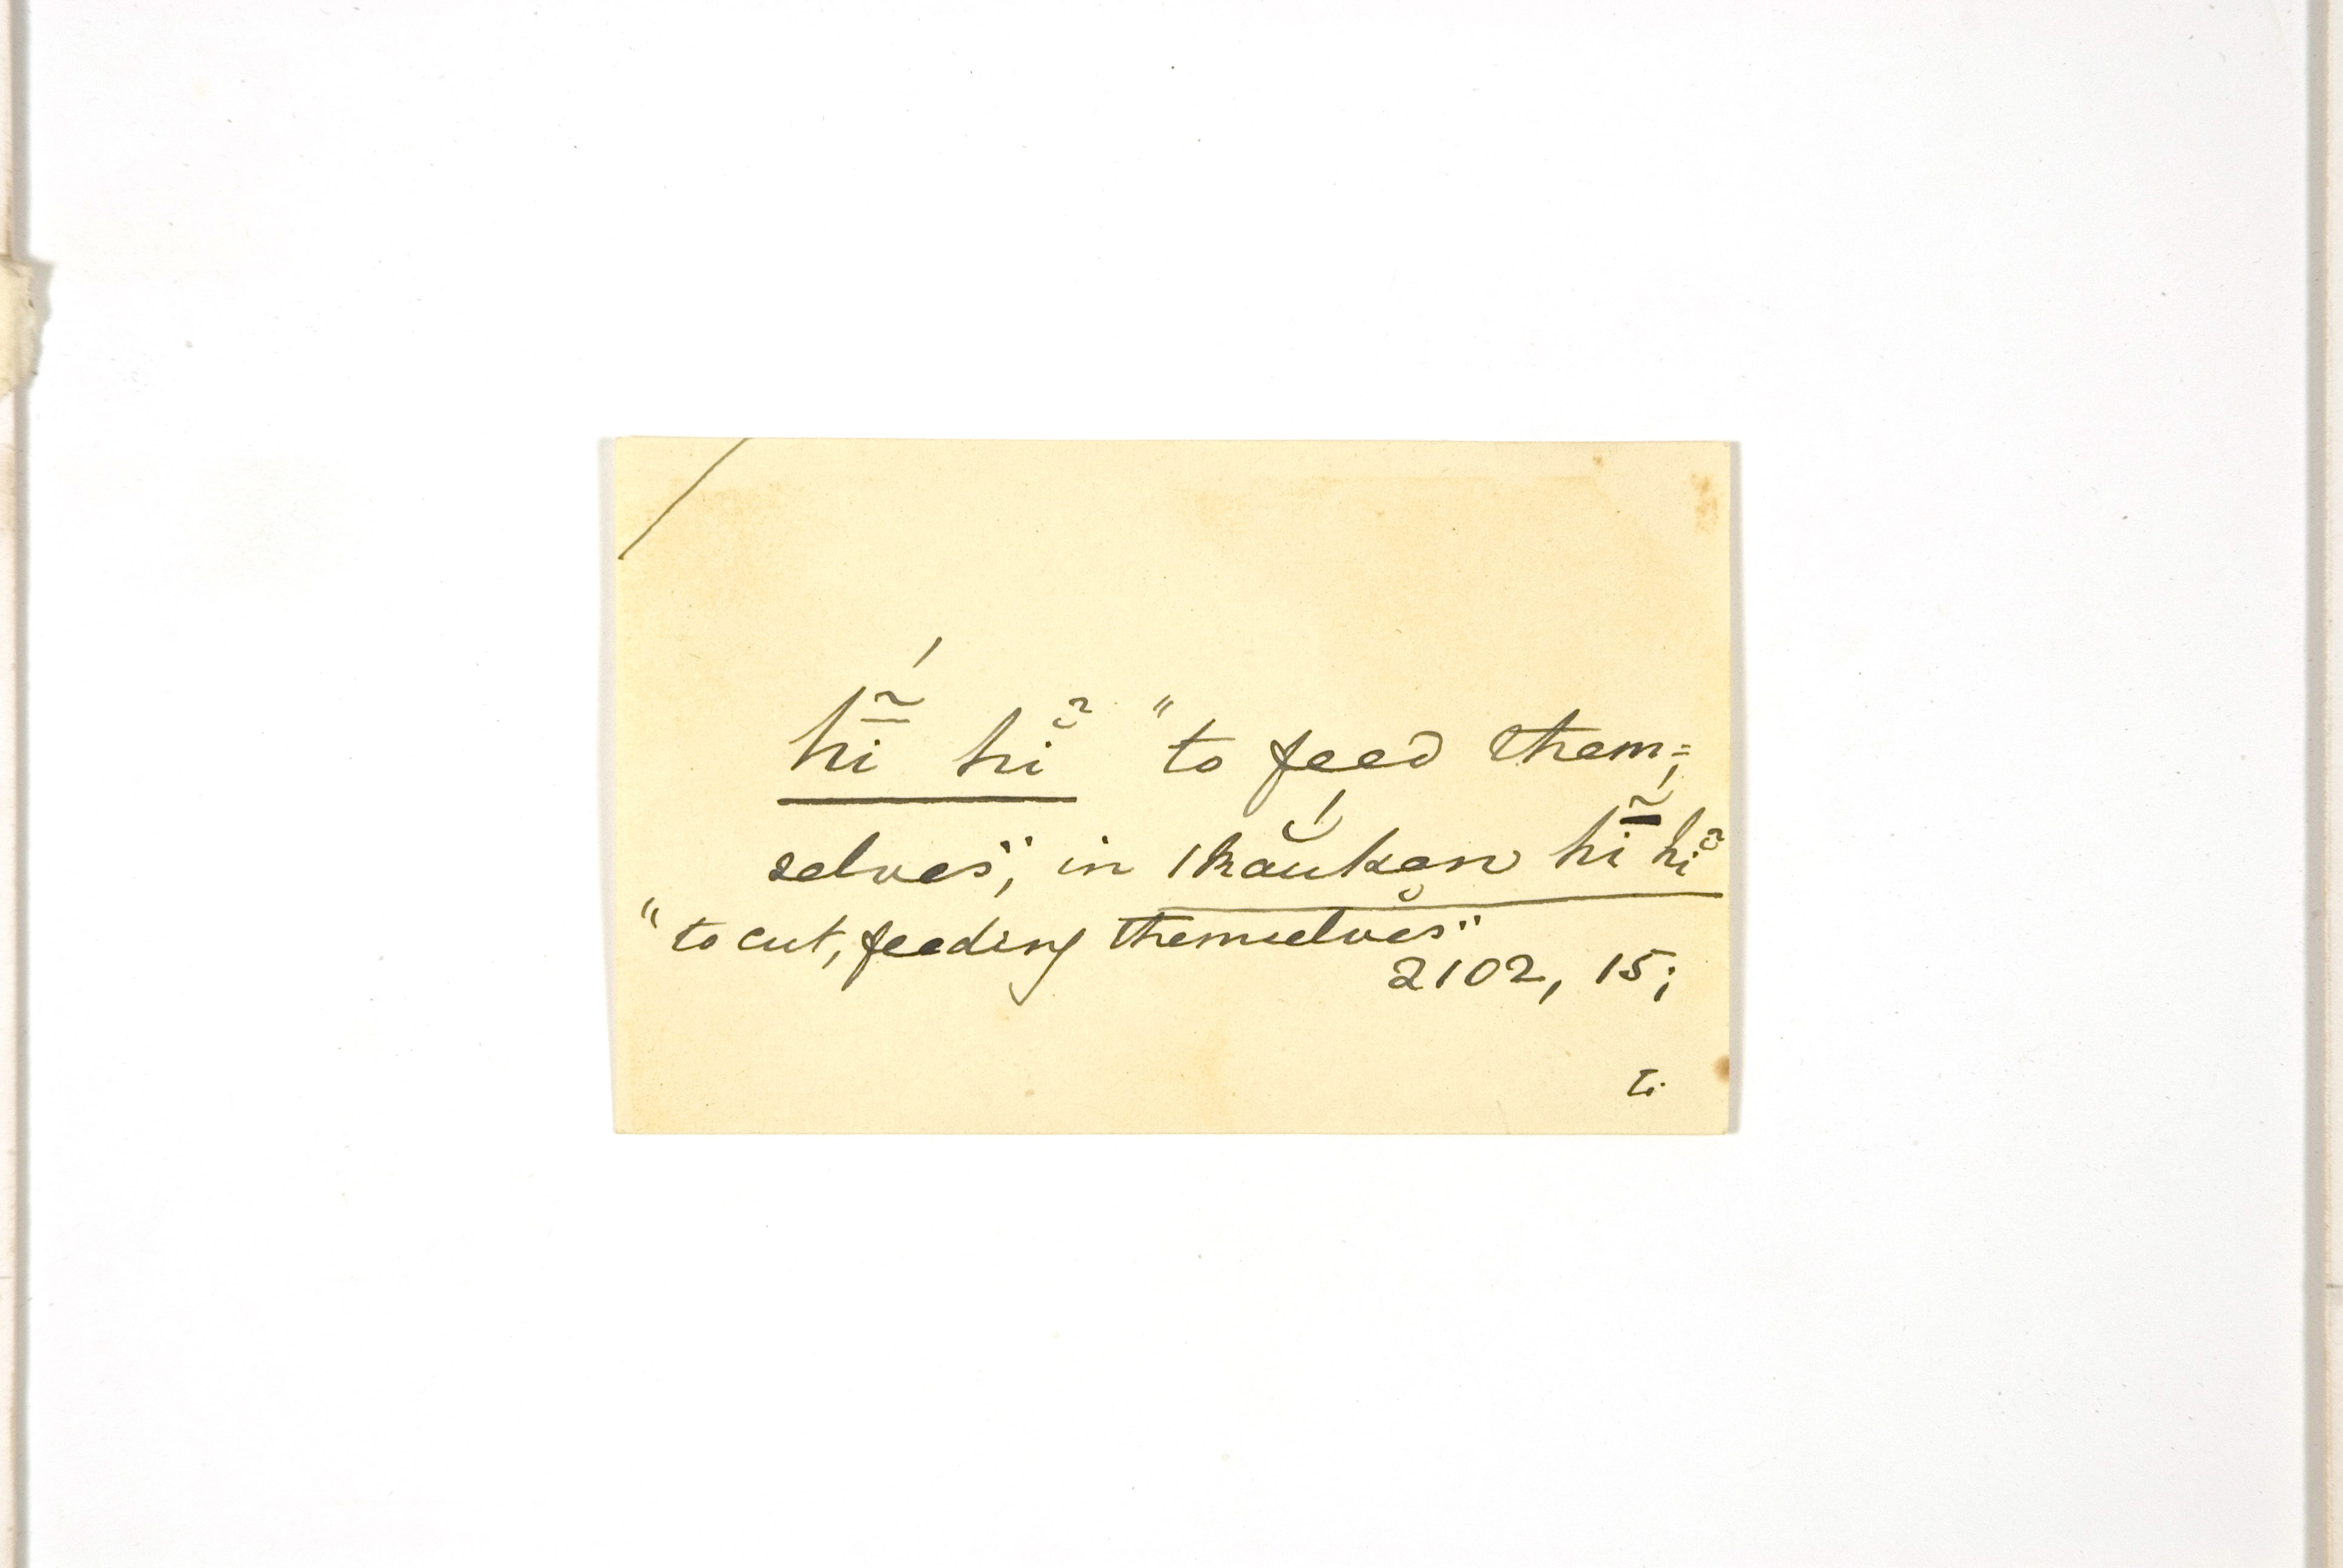 hī̃́ hĭ̃ "to feed them=
selves", in |kắŭken hī̃ hĭ̃
"to cut, feeding themselves"
2102, 15;
t.